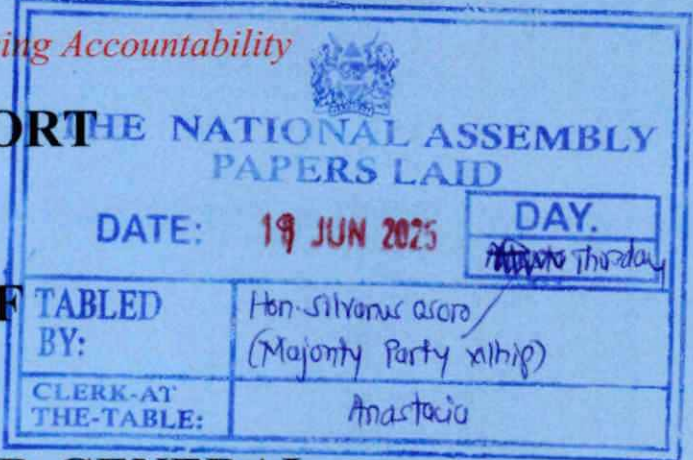 ing Accountability
ORT
THE NATIONAL ASSEMBLY
PAPERS LAID
DATE: 19 JUN 2025
DAY.
Thursday
TABLED BY:
Hon. Silvanus Osoro
(Majority Party Whip)
CLERK-AT THE-TABLE:
Anastacia